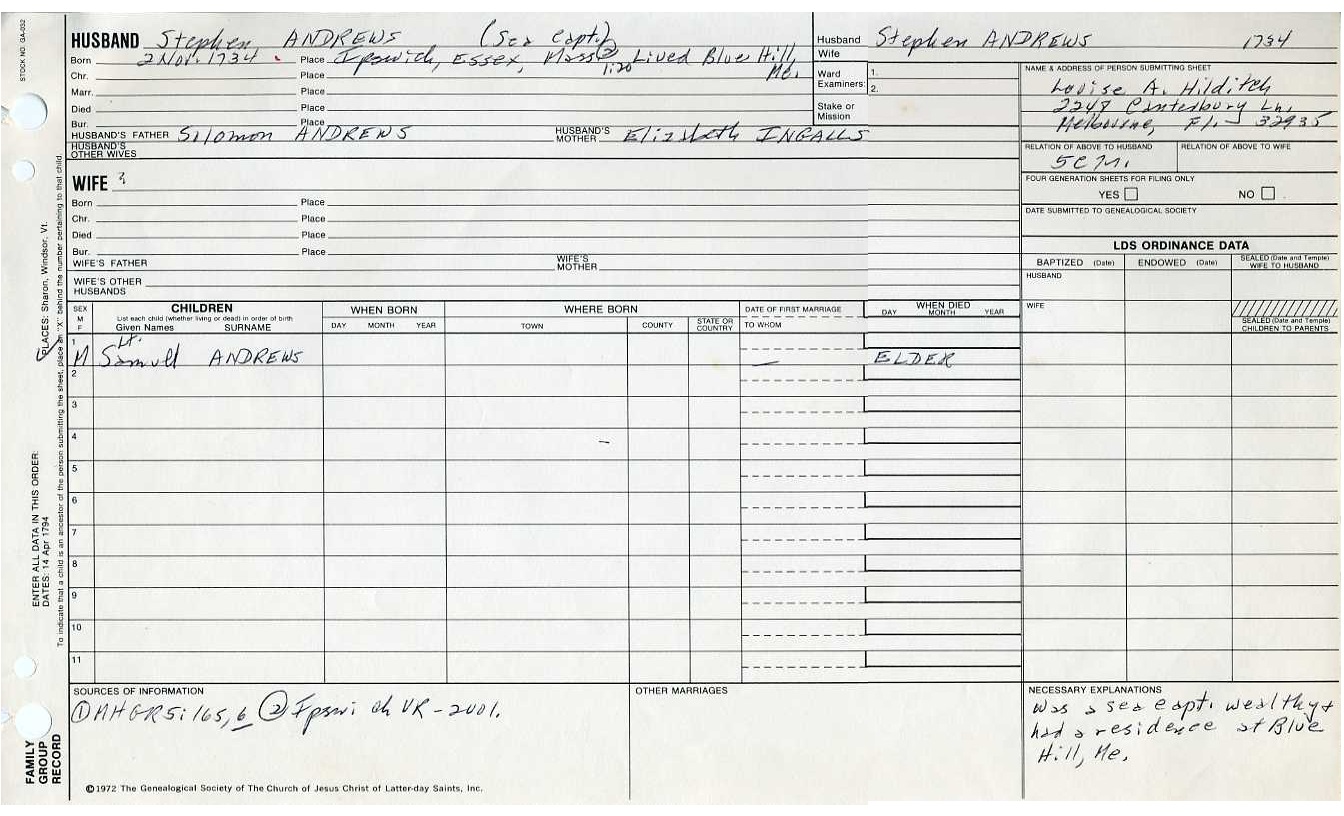 STOCK NO. GA-032
HUSBAND Stephen ANDREWS (Sea capt.)
Born 2 Nov. 1734 Place Ipswich, Essex, Mass② Lived Blue Hill, Me.
Chr. Place
Marr. Place
Died Place
Bur. Place
HUSBAND'S FATHER Solomon ANDREWS HUSBAND'S MOTHER Elizabeth INGALLS
HUSBAND'S OTHER WIVES
WIFE ?
Born Place
Chr. Place
Died Place
Bur. Place
WIFE'S FATHER WIFE'S MOTHER
WIFE'S OTHER HUSBANDS
Husband Stephen ANDREWS 1734
Wife
Ward Examiners: 1.
2.
Stake or Mission
NAME & ADDRESS OF PERSON SUBMITTING SHEET
Louise A. Hilditch
2248 Canterbury Ln,
Melbourne, Fl. 32935
RELATION OF ABOVE TO HUSBAND RELATION OF ABOVE TO WIFE
5C
FOUR GENERATION SHEETS FOR FILING ONLY
YES NO
DATE SUBMITTED TO GENEALOGICAL SOCIETY
LDS ORDINANCE DATA
BAPTIZED (Date) ENDOWED (Date) SEALED (Date and Temple) WIFE TO HUSBAND
HUSBAND
WIFE
SEALED (Date and Temple) CHILDREN TO PARENTS
SEX M F
CHILDREN
List each child (whether living or dead) in order of birth
Given Names SURNAME
WHEN BORN
DAY MONTH YEAR
WHERE BORN
TOWN COUNTY STATE OR COUNTRY
DATE OF FIRST MARRIAGE
TO WHOM
WHEN DIED
DAY MONTH YEAR
1
M Lt. Samuel ANDREWS — ELDER
2
3
4
5
6
7
8
9
10
11
SOURCES OF INFORMATION
① MHGR5:165,6 ② Ipswich VR-2001.
OTHER MARRIAGES
NECESSARY EXPLANATIONS
was a sea capt. wealthy +
had a residence at Blue
Hill, Me.
©1972 The Genealogical Society of The Church of Jesus Christ of Latter-day Saints, Inc.
FAMILY GROUP RECORD
ENTER ALL DATA IN THIS ORDER:
DATES: 14 Apr 1794
PLACES: Sharon, Windsor, Vt.
To indicate that a child is an ancestor of the person submitting the sheet, place an "X" behind the number pertaining to that child.